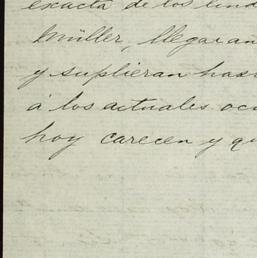 exacta de los lind
Müller, llegar an
y suplieran hax
á los actuales ocu
hoy carecen y qu